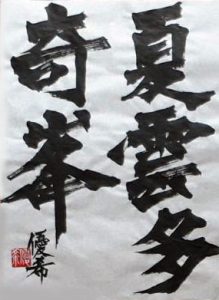 夏雲多
奇峯
優希